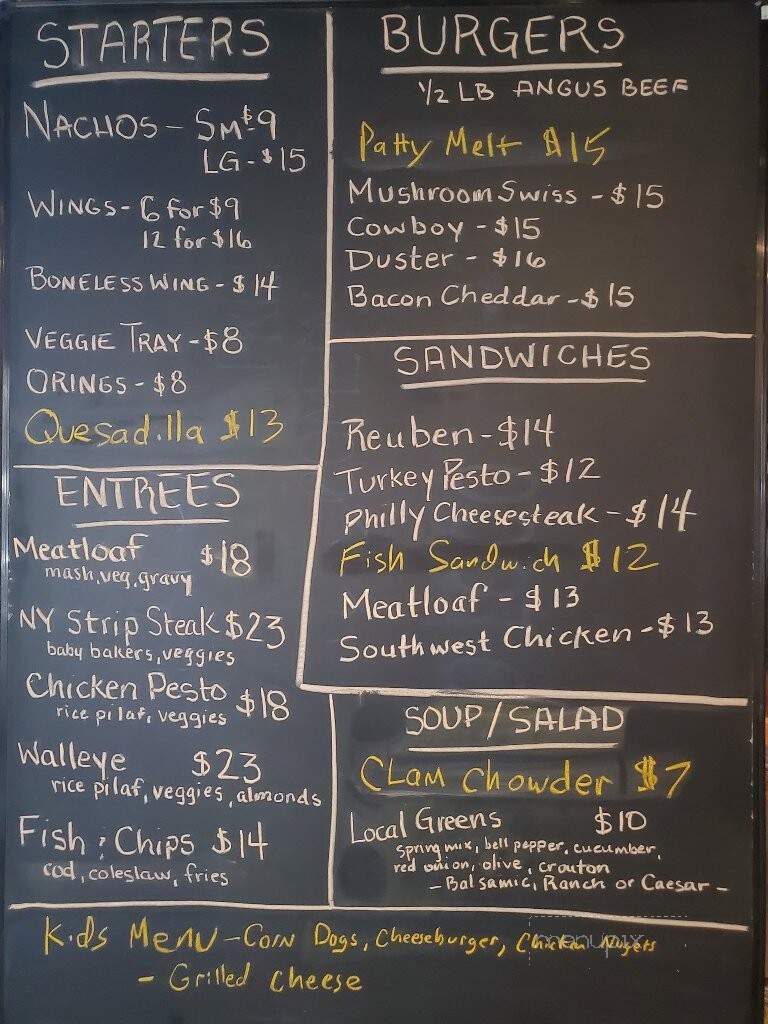 STARTERS
NACHOS - SM $9
LG - $15
WINGS - 6 for $9
12 for $16
BONELESS WING - $14
VEGGIE TRAY - $8
ORINGS - $8
Quesadilla $13
ENTREES
Meatloaf $18
mash, veg, gravy
NY Strip Steak $23
baby bakers, veggies
Chicken Pesto $18
rice pilaf, veggies
Walleye $23
rice pilaf, veggies, almonds
Fish & Chips $14
cod, coleslaw, fries
BURGERS
1/2 LB ANGUS BEEF
Patty Melt $15
Mushroom Swiss - $15
Cowboy - $15
Duster - $16
Bacon Cheddar - $15
SANDWICHES
Reuben - $14
Turkey Pesto - $12
Philly Cheesesteak - $14
Fish Sandwich $12
Meatloaf - $13
Southwest Chicken - $13
SOUP/SALAD
Clam Chowder $7
Local Greens $10
spring mix, bell pepper, cucumber,
red onion, olive, crouton
- Balsamic, Ranch or Caesar -
Kids Menu - Corn Dogs, Cheeseburger, Chicken Nugets
- Grilled Cheese
menupix